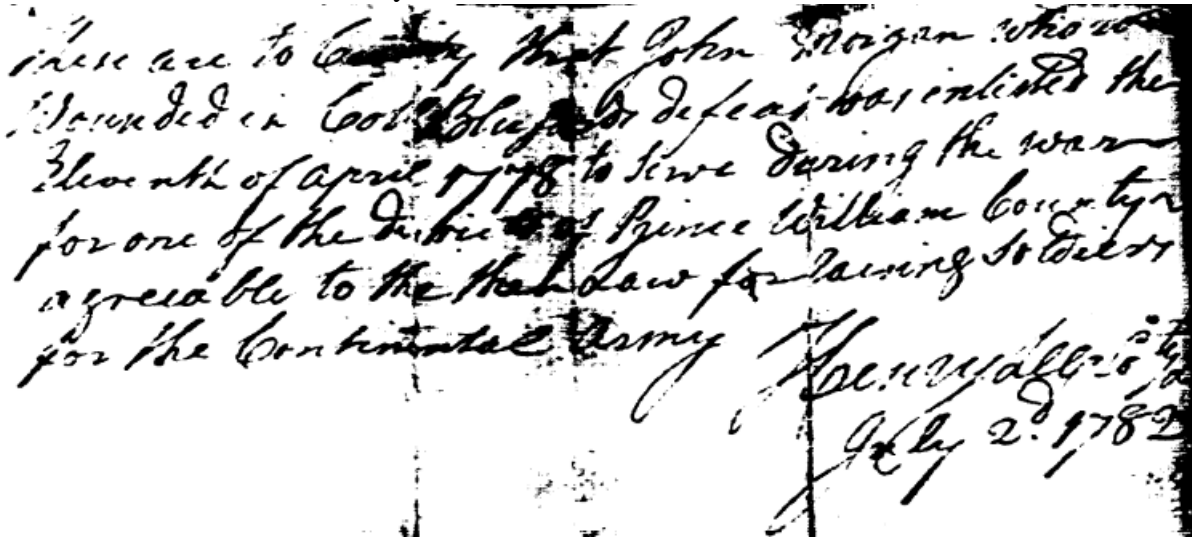 These are to Certify that John Morgan who was
Wounded in Colº Blufords defeat was enlisted the
Eleventh of april 1778 to serve during the war
for one of the districts of Prince William County
agreeable to the then Law for raising Soldiers
for the Continental Army
Henry Lee
July 2d. 1782